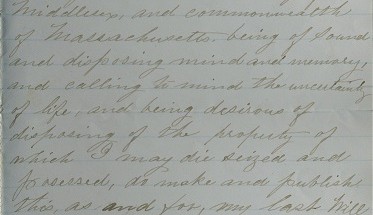 Middlesex, and commonwealth
of Massachusetts being of Sound
and disposing mind and memory,
and calling to mind the uncertainty
of life, and being desirous of
disposing of the property of
which I may die seized and
posessed, do make and publish
this, as and for, my last Will